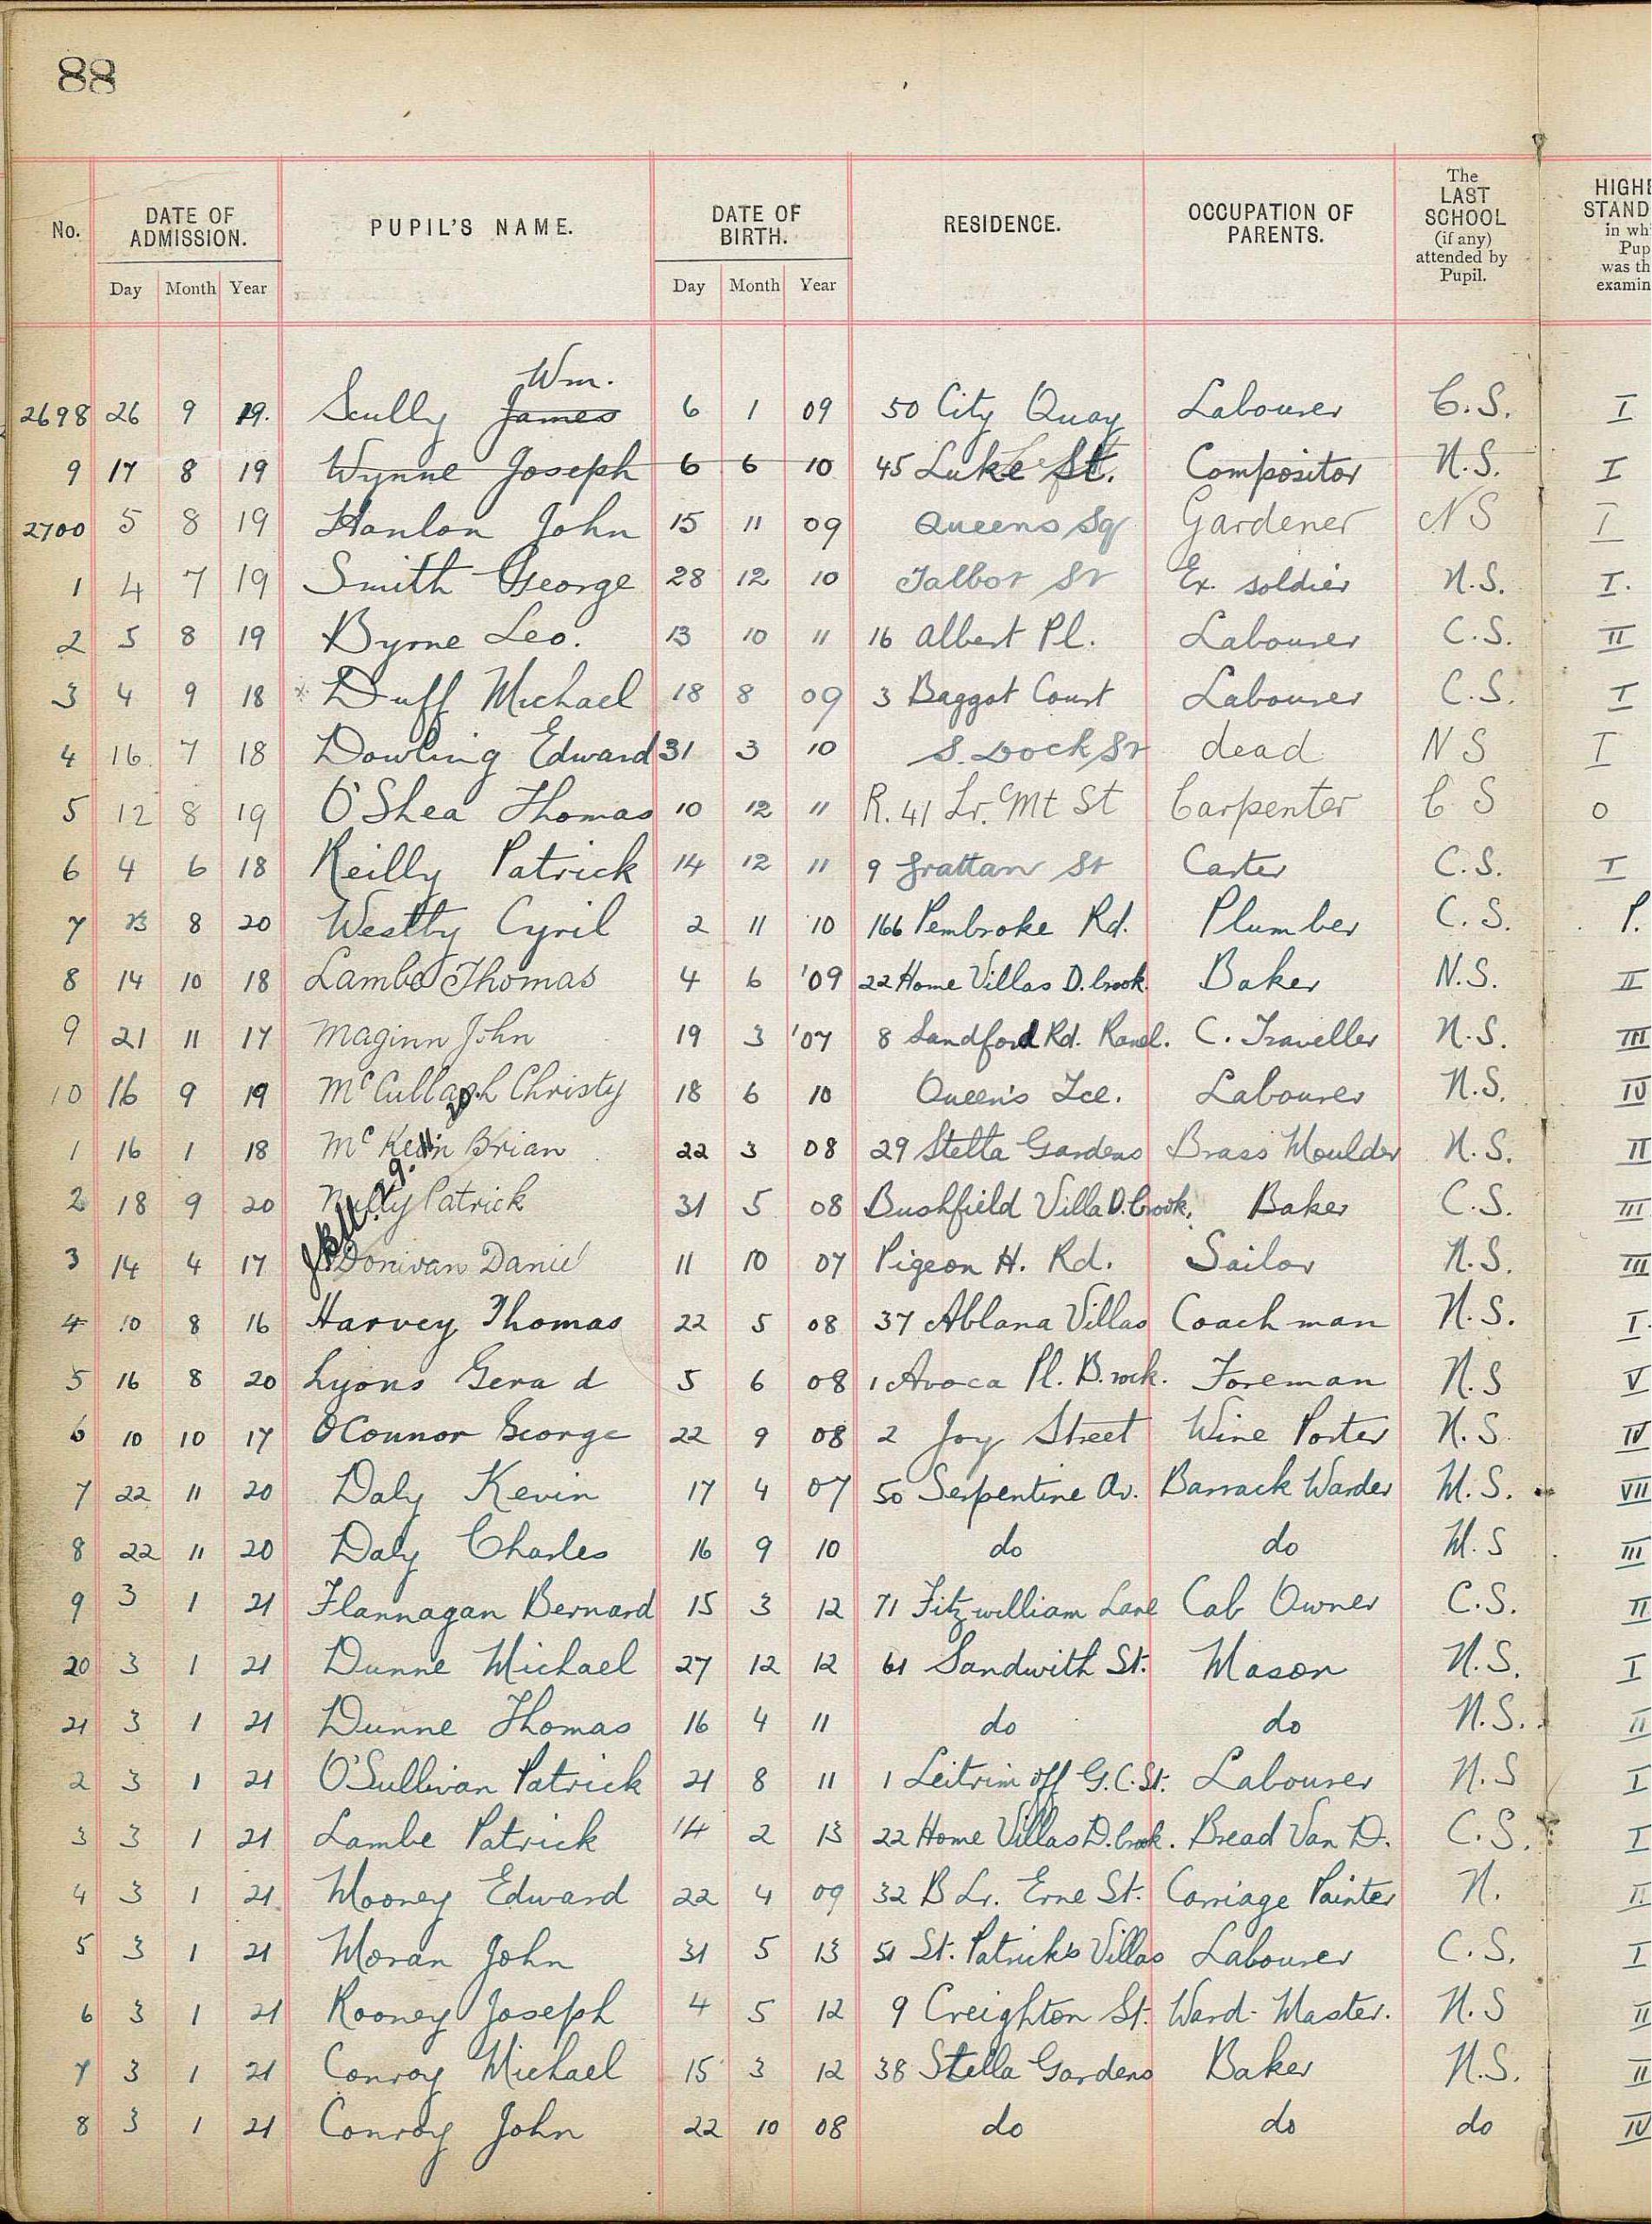 88
No. DATE OF ADMISSION. PUPIL'S NAME. DATE OF BIRTH. RESIDENCE. OCCUPATION OF PARENTS. The LAST SCHOOL (if any) attended by Pupil. HIGHE STAND in whi Pup was th examin
Day Month Year Day Month Year
Wm.
2698 26 9 19. Scully James 6 1 09 50 City Quay Labourer C.S. I
9 17 8 19 Wynne Joseph 6 6 10 45 Luke St. Compositor N.S. I
2700 5 8 19 Hanlon John 15 11 09 Queens Sq Gardener NS I
1 4 7 19 Smith George 28 12 10 Talbot St Ex. soldier N.S. I.
2 5 8 19 Byrne Leo. 13 10 11 16 Albert Pl. Labourer C.S. II
3 4 9 18 Duff Michael 18 8 09 3 Baggot Court Labourer C.S. I
4 16 7 18 Dowling Edward 31 3 10 S. Dock St dead N S I
5 12 8 19 O'Shea Thomas 10 12 11 R. 41 Lr. Mt St Carpenter C S 0
6 4 6 18 Reilly Patrick 14 12 11 9 Grattan St Carter C.S. I
7 8 20 Westby Cyril 2 11 10 166 Pembroke Rd. Plumber C.S. P.
8 14 10 18 Lambe Thomas 4 6 '09 22 Home Villas D.brook. Baker N.S. II
9 21 11 17 Maginn John 19 3 '07 8 Sandford Rd. Ranel. C. Traveller N.S. III
10 16 9 19 McCullagh Christy 18 6 10 Queen's Tce. Labourer N.S. IV
1 16 1 18 Brian 22 3 08 29 Stella Gardens Brass Moulder N.S. II
2 18 9 20 Patrick 31 5 08 Bushfield Villa D.brook. Baker C.S. III
3 14 4 17 Donivan Daniel 11 10 07 Pigeon H. Rd. Sailor N.S. III
4 10 8 16 Harvey Thomas 22 5 08 37 Ablana Villas Coachman N.S. I
5 16 8 20 Lyons Gera d 5 6 08 1 Avoca Pl. B.rock. Foreman N.S V
6 10 10 17 OConnor George 22 9 08 2 Joy Street Wine Porter N.S. IV
7 22 11 20 Daly Kevin 17 4 07 50 Serpentine Av. Barrack Warder M.S. VII
8 22 11 20 Daly Charles 16 9 10 do do M.S III
9 3 1 21 Flannagan Bernard 15 3 12 71 Fitzwilliam Lane Cab Owner C.S. II
20 3 1 21 Dunne Michael 27 12 12 61 Sandwith St. Mason N.S. I
21 3 1 21 Dunne Thomas 16 4 11 do do N.S. II
2 3 1 21 O'Sullivan Patrick 21 8 11 1 Leitrim off G.C.St. Labourer N.S I
3 3 1 21 Lambe Patrick 14 2 13 22 Home Villas D.brook. Bread Van D. C.S. I
4 3 1 21 Mooney Edward 22 4 09 32 B Lr. Erne St. Carriage Painter N. II
5 3 1 21 Moran John 31 5 13 51 St. Patrick's Villas Labourer C.S. I
6 3 1 21 Rooney Joseph 4 5 12 9 Creighton St. Ward-Master. N.S II
7 3 1 21 Conroy Michael 15 3 12 38 Stella Gardens Baker N.S. II
8 3 1 21 Conroy John 22 10 08 do do do IV